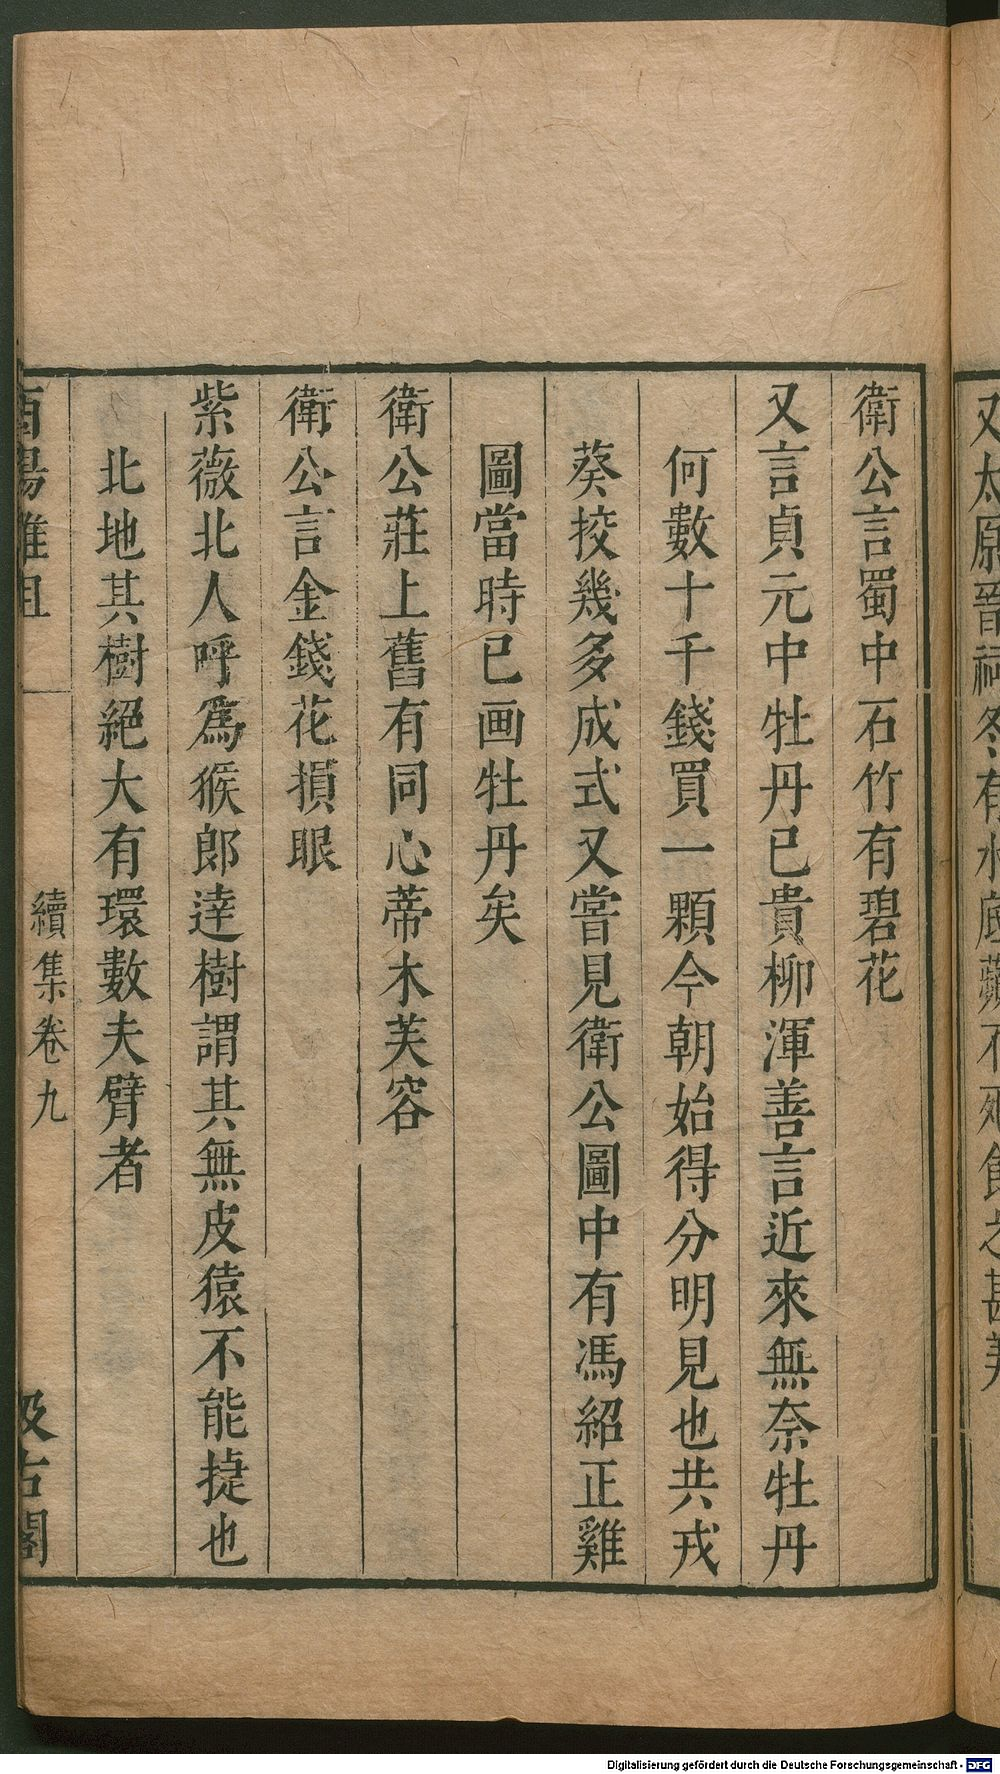 又太原晉祠冬有水底蘋不死食之甚美
衛公言蜀中石竹有碧花
又言貞元中牡丹已貴柳渾善言近來無奈牡丹
何數十千錢買一顆今朝始得分明見也共戎
葵挍幾多成式又嘗見衛公圖中有馮紹正雞
圖當時已画牡丹矣
衛公莊上舊有同心蒂木芙容
衛公言金錢花損眼
紫薇北人呼爲猴郎達樹謂其無皮猿不能捷也
北地其樹絕大有環數夫臂者
酉陽雜俎
續集卷九
汲古閣
Digitalisierung gefördert durch die Deutsche Forschungsgemeinschaft - DFG